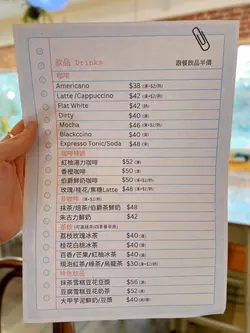 飲品 Drinks
跟餐飲品半價
咖啡
Americano $38 (凍+$2/熱)
Latte /Cappuccino $42 (凍+$2/熱)
Flat White $42 (熱)
Dirty $40 (凍)
Mocha $46 (凍+$2/熱)
Blackccino $40 (凍)
Expresso Tonic/Soda $48 (凍)
咖啡特飲
紅柚湯力咖啡 $52 (凍)
香橙咖啡 $50 (凍)
伯爵鮮奶咖啡 $50 (凍+$2/熱)
玫瑰/桂花/焦糖Latte $48 (凍+$2/熱)
非咖啡
抹茶/焙茶/伯爵茶鮮奶 $48
朱古力鮮奶 $42
茶飲
荔枝玫瑰冰茶 $40 (凍)
桂花白桃冰茶 $40 (凍)
百香/芒果/紅柚冰茶 $40 (凍)
規泡紅茶/綠茶/烏龍茶 $30 (凍+$2/熱)
特色飲品
抹茶雪糕豆花豆漿 $56 (凍)
豆腐雪糕豆花奶茶 $52 (凍)
大甲芋泥鮮奶/豆漿 $40